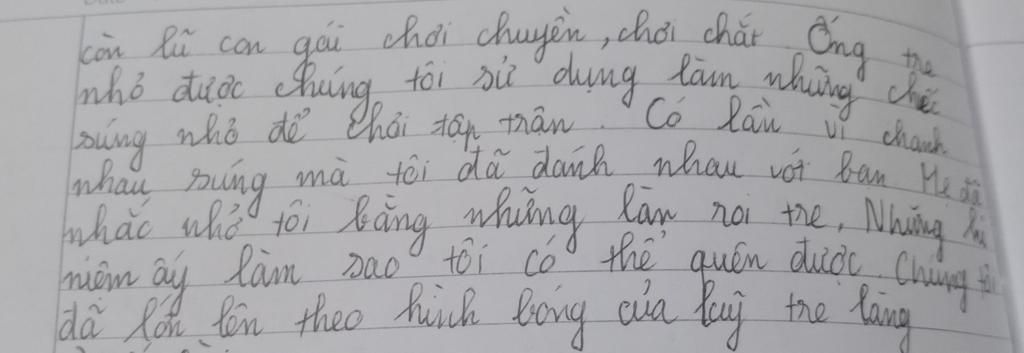 còn lũ con gái chơi chuyền, chơi chắt. Ống tre
nhỏ được chúng tôi sử dụng làm những chiếc
súng nhỏ để chơi tập trận. Có lần vì chanh
nhau súng mà tôi đã đánh nhau với bạn Mẹ đã
nhắc nhở tôi bằng những lằn roi tre, Những kỉ
niệm ấy làm sao tôi có thể quên được. Chúng tôi
đã lớn lên theo hình bóng của luỹ tre làng